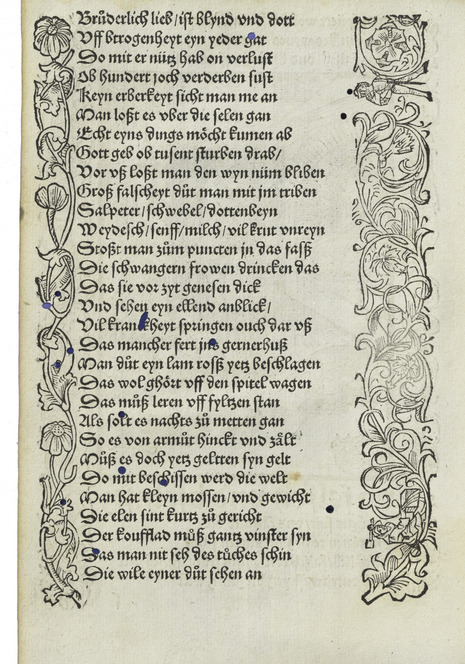 Brůderlich lieb/ist blynd vnd dott
Vff btrogenheyt eyn yeder gat
Do mit er nütz hab on verlust
Ob hundert joch verderben sust
Keyn erberkeyt sicht man me an
Man loßt es vber die selen gan
Echt eyns dings möcht kumen ab
Gott geb ob tusent sturben drab/
Vor vß loßt man den wyn nüm bliben
Groß falscheyt důt man mit jm triben
Salpeter/schwebel/dottenbeyn
Weydesch/senff/milch/vil krut vnreyn
Stoßt man zům puncten jn das faß
Die schwangern frowen drincken das
Das sie vor zyt genesen dick
Vnd sehen eyn ellend anblick/
Vil kranckheyt springen ouch dar vß
Das mancher fert jns gernerhuß
Man důt eyn lam rosß yetz beschlagen
Das wol ghört vff den spitel wagen
Das můß leren vff fyltzen stan
Als solt es nachts zů metten gan
So es von armůt hinckt vnd zält
Můß es doch yetz geltten syn gelt
Do mit beschissen werd die welt
Man hat kleyn mossen/vnd gewicht
Die elen sint kurtz zů gericht
Der koufflad můß gantz vinster syn
Das man nit seh des tůches schin
Die wile eyner důt sehen an